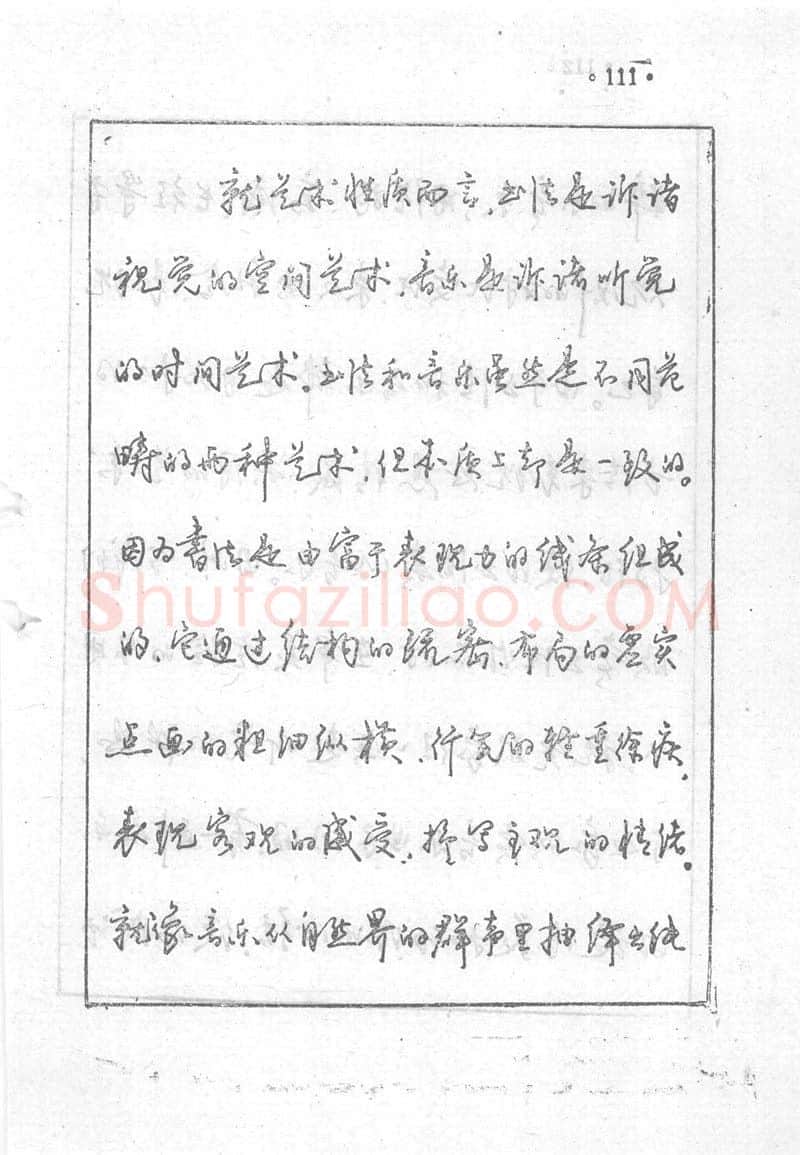 。111·
就艺术性质而言，书法是诉诸
视觉的空间艺术，音乐是诉诸听觉
的时间艺术。书法和音乐虽然是不同范
畴的两种艺术，但本质上却是一致的。
因为書法是由富于表现力的线条组成
Shufaziliao.COM
的、它通过结构的疏密、布局的虚实
点画的粗细纵横、行气的轻重徐疾，
表现客观的感受，抒写主观的情绪。
就像音乐从自然界的群声里抽绎出纯